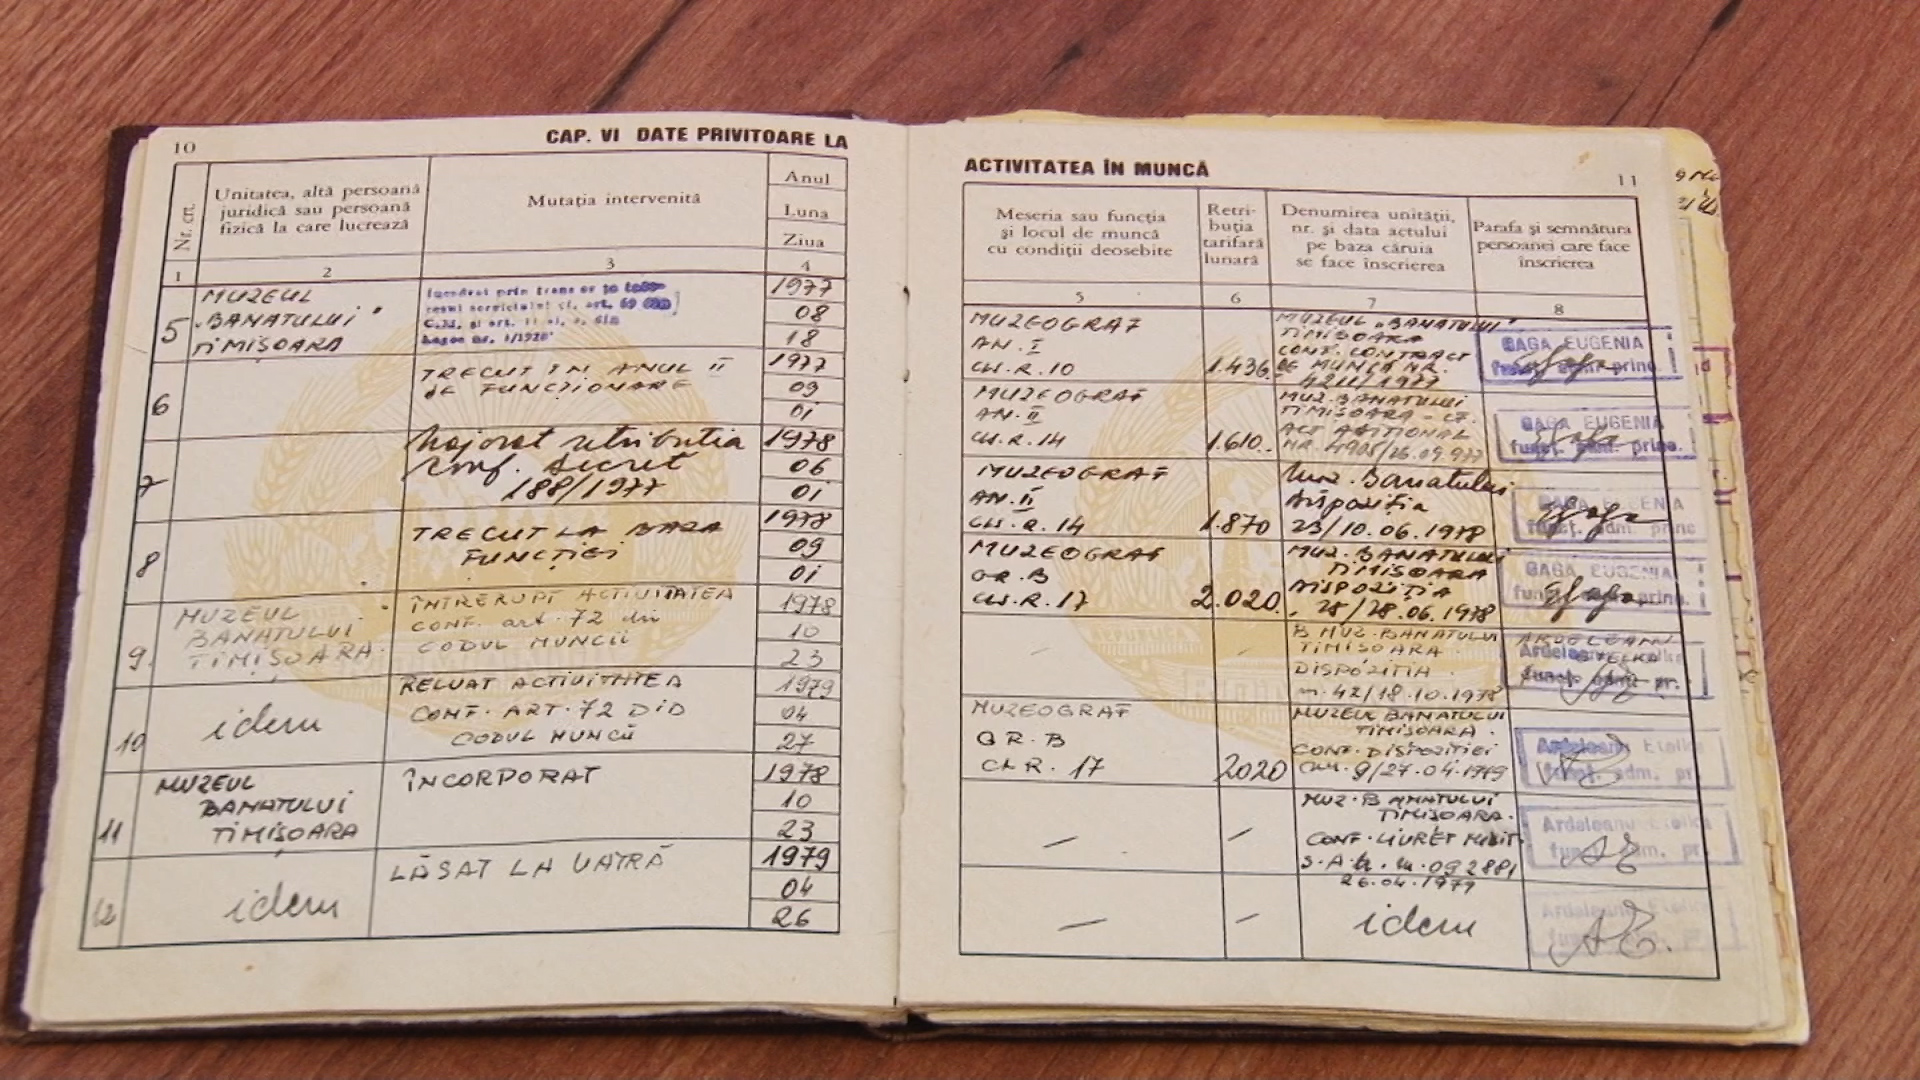 10
CAP. VI DATE PRIVITOARE LA
Nr. crt.
Unitatea, altă persoană
juridică sau persoană
fizică la care lucrează
Mutația intervenită
Anul
Luna
Ziua
1
2
3
4
5
MUZEUL
"BANATULUI"
TIMIȘOARA
1977
08
18
6
TRECUT IN ANUL II
DE FUNCȚIONARE
1977
09
01
7
Majorat retributia
conf. Decret
188/1977
1978
06
01
8
TRECUT LA BAZA
FUNCȚIEI
1978
09
01
9.
MUZEUL
BANATULUI
TIMIȘOARA.
ÎNTRERUPT ACTIVITATEA
CONF. art. 72 din
CODUL MUNCII
1978
10
23
10
idem
RELUAT ACTIVITATEA
CONF. ART. 72 DID
CODUL MUNCII
1979
04
27
11
MUZEUL
BANATULUI
TIMIȘOARA
ÎNCORPORAT
1978
10
23
12
idem
LĂSAT LA VATRĂ
1979
04
26
ACTIVITATEA ÎN MUNCĂ
11
Meseria sau funcția
și locul de muncă
cu condiții deosebite
Retri-
buția
tarifară
lunară
Denumirea unității,
nr. și data actului
pe baza căruia
se face înscrierea
Parafa și semnătura
persoanei care face
înscrierea
5
6
7
8
MUZEOGRAF
AN. I
CL. R. 10
1.436.
MUZEUL "BANATULUI"
TIMIȘOARA
CONF. CONTRACT
DE MUNCĂ NR.
/1977
GAGA EUGENIA
funcț. adm. princ.
MUZEOGRAF
AN. II
CL. R. 14
1.610.
MUZ. BANATULUI
TIMIȘOARA - CF.
ACT ADIȚIONAL
NR. 4905/26.09.977
GAGA EUGENIA
funcț. adm. princ.
MUZEOGRAF
AN. II
CL. R. 14
1.870
Muz. Banatului
Dispoziția
23/10.06.1978
GAGA EUGENIA
funcț. adm. princ
MUZEOGRAF
GR. B
CL. R. 17
2.020.
MUZ. BANATULUI
TIMIȘOARA
DISPOZIȚIA
28/28.06.1978
GAGA EUGENIA
funcț. adm. princ.
MUZ. BANATULUI
TIMIȘOARA
DISPOZITIA
nr. 42/18.10.1978
ARDELEANU
ETELKA
funcț. adm. pr.
MUZEOGRAF
GR. B
CL R. 17
2020
MUZEUL BANATULUI
TIMIȘOARA.
CONF. DISPOZIȚIEI
9/27.04.1979
Ardeleanu Etelka
funcț. adm. pr.
MUZ. BANATULUI
TIMIȘOARA.
CONF. LIVRET MILIT.
092881
26.04.1979
Ardeleanu Etelka
funcț. adm. pr.
idem
Ardeleanu Etelka